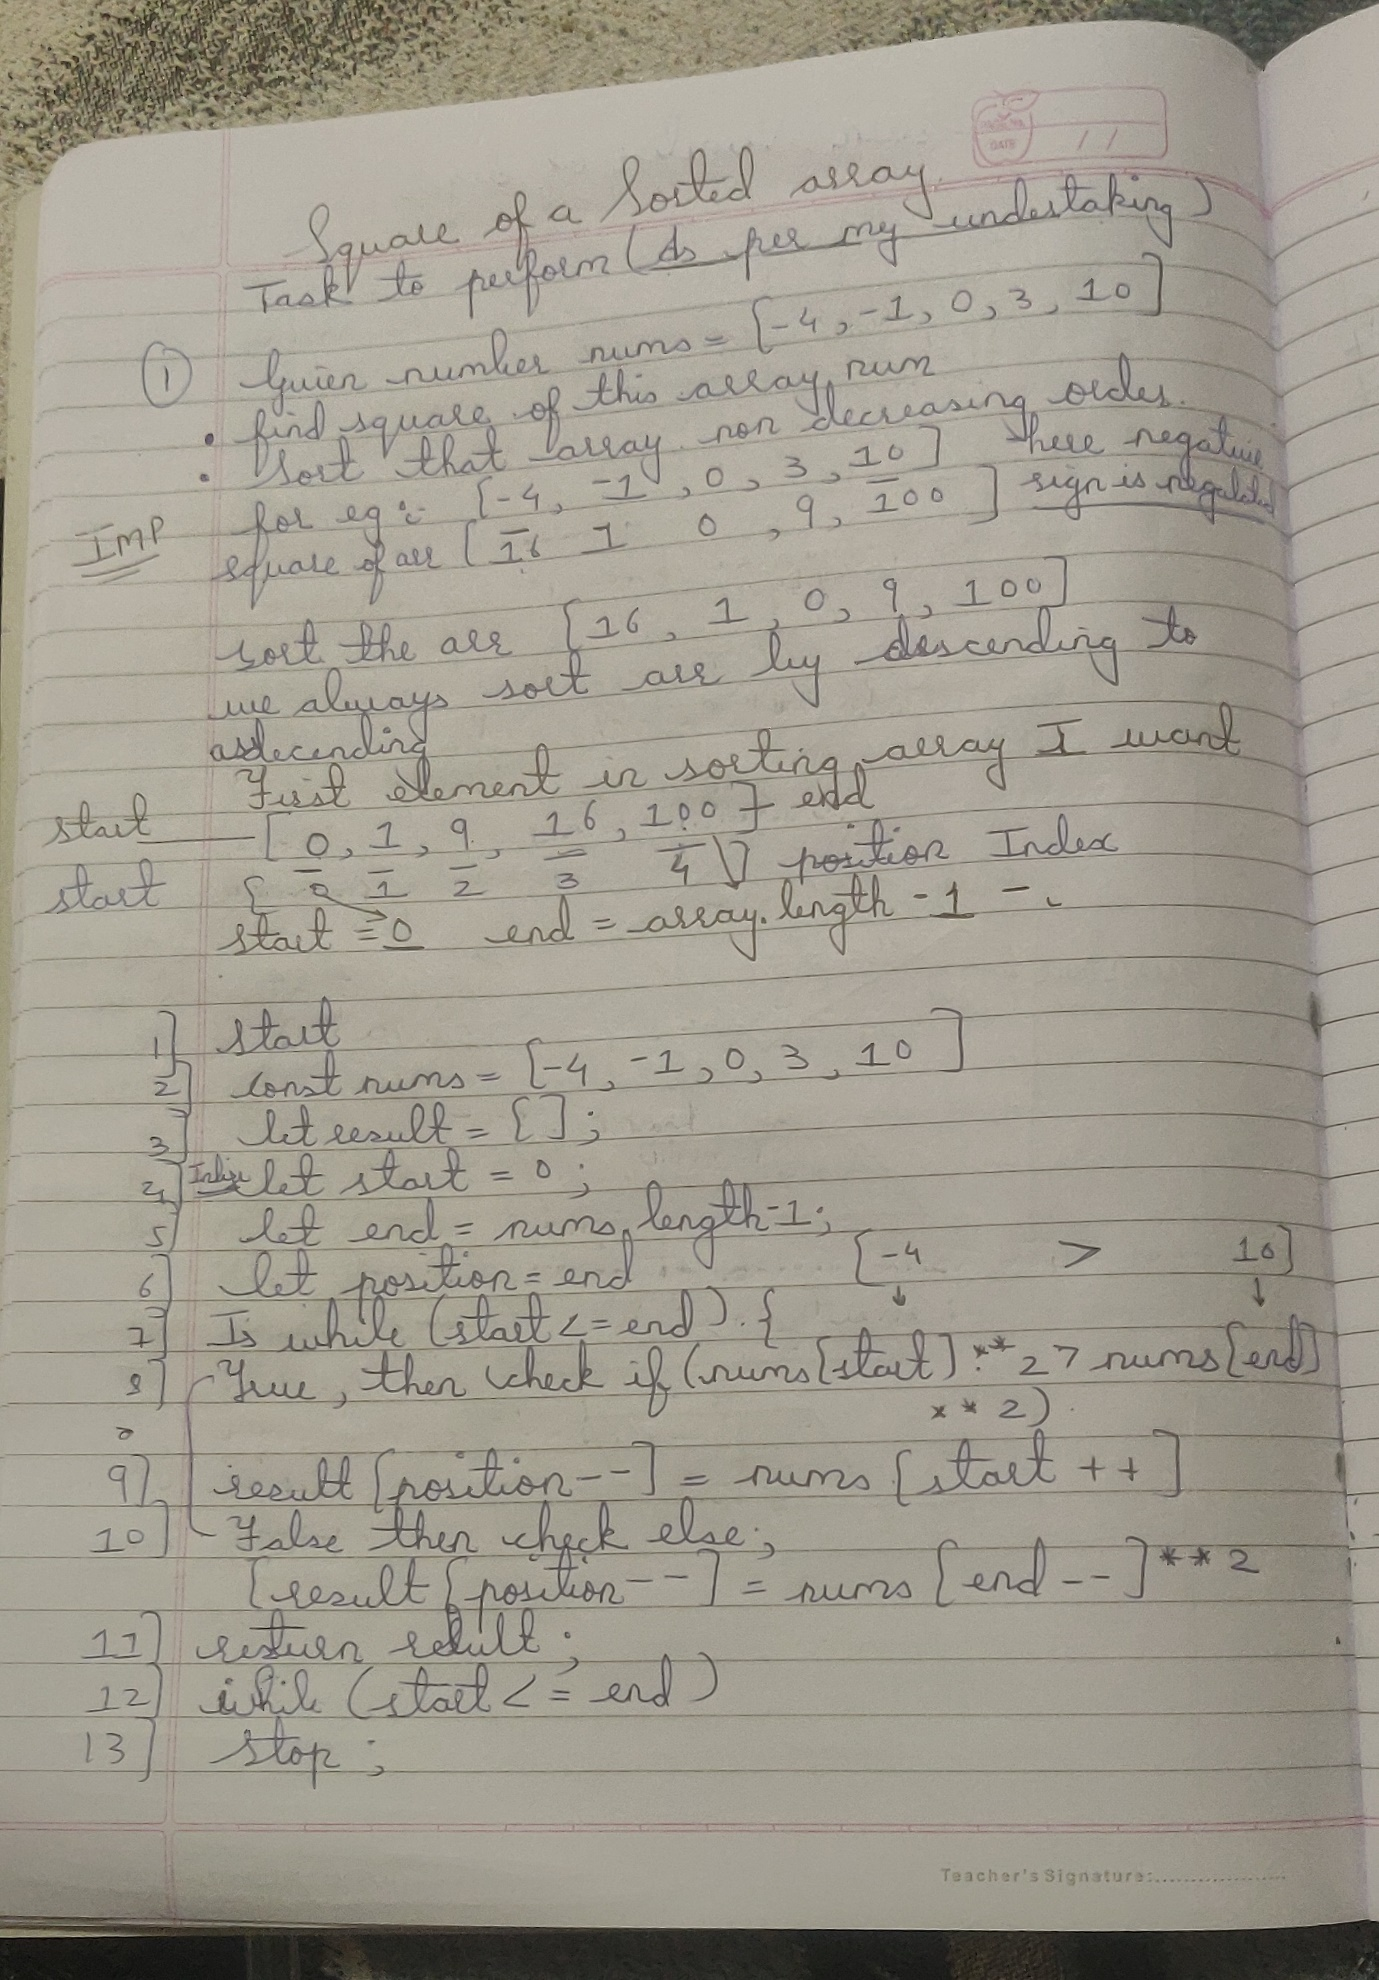 DATE / /
Square of a Sorted array.
Task to perform (As per my undestaking)
① Guien number nums = [-4, -1, 0, 3, 10]
• find square of this array num
• Sort that array non decreasing order.
for eg :- [-4, -1, 0, 3, 10] here negative
IMP square of arr [16 1 0, 9, 100] sign is
sort the arr [16, 1, 0, 9, 100]
we always sort arr by descending to
asdecending
First element in sorting array I want
start [0, 1, 9, 16, 100] end
start 0 1 2 3 4 position Index
start = 0 end = array.length - 1 -.
1] start
2] const nums = [-4, -1, 0, 3, 10]
3] let result = [];
4] let start = 0;
5] let end = nums.length-1;
6] let position = end [-4 > 10]
7] Is while (start <= end) {
8] True, then check if (nums[start] ** 2 > nums[end]
** 2)
9] result [position--] = nums [start ++]
10] False then check else;
[result [position--] = nums [end--] ** 2
11] return result;
12] while (start <= end)
13] stop;
Teacher's Signature: